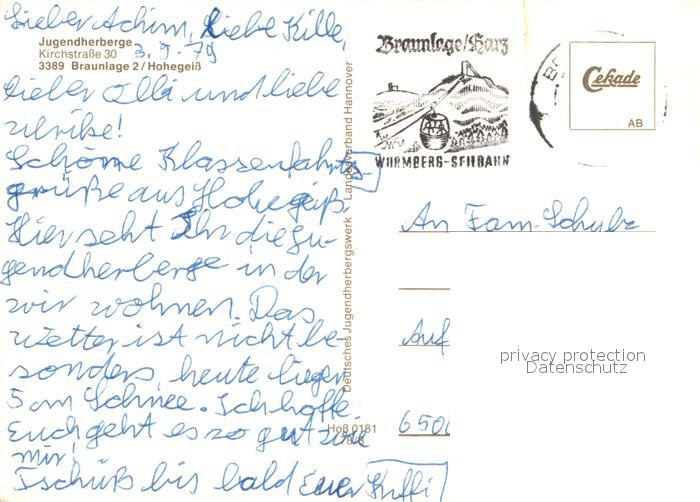 Lieber Achim, Liebe Kille,
Jugendherberge
Kirchstraße 30
3389 Braunlage 2/Hohegeiß
3.9.79
lieber Olli und liebe
Ulrike!
Schöne Klassenfahrts-
grüße aus Hohegeiß.
Hier seht Ihr die Ju-
gendherberge in der
wir wohnen. Das
Wetter ist nicht be-
sonders, heute liegen
5 cm Schnee. Ich hoffe
Euch geht es so gut wie
mir!
Tschüß bis bald Euer Kuffi
Deutsches Jugendherbergswerk Landesverband Hannover
Hoß 0181
Braunlage/Harz
WURMBERG-SEILBAHN
Cekade
AB
An Fam. Schulz
Auf
650
privacy protection
Datenschutz